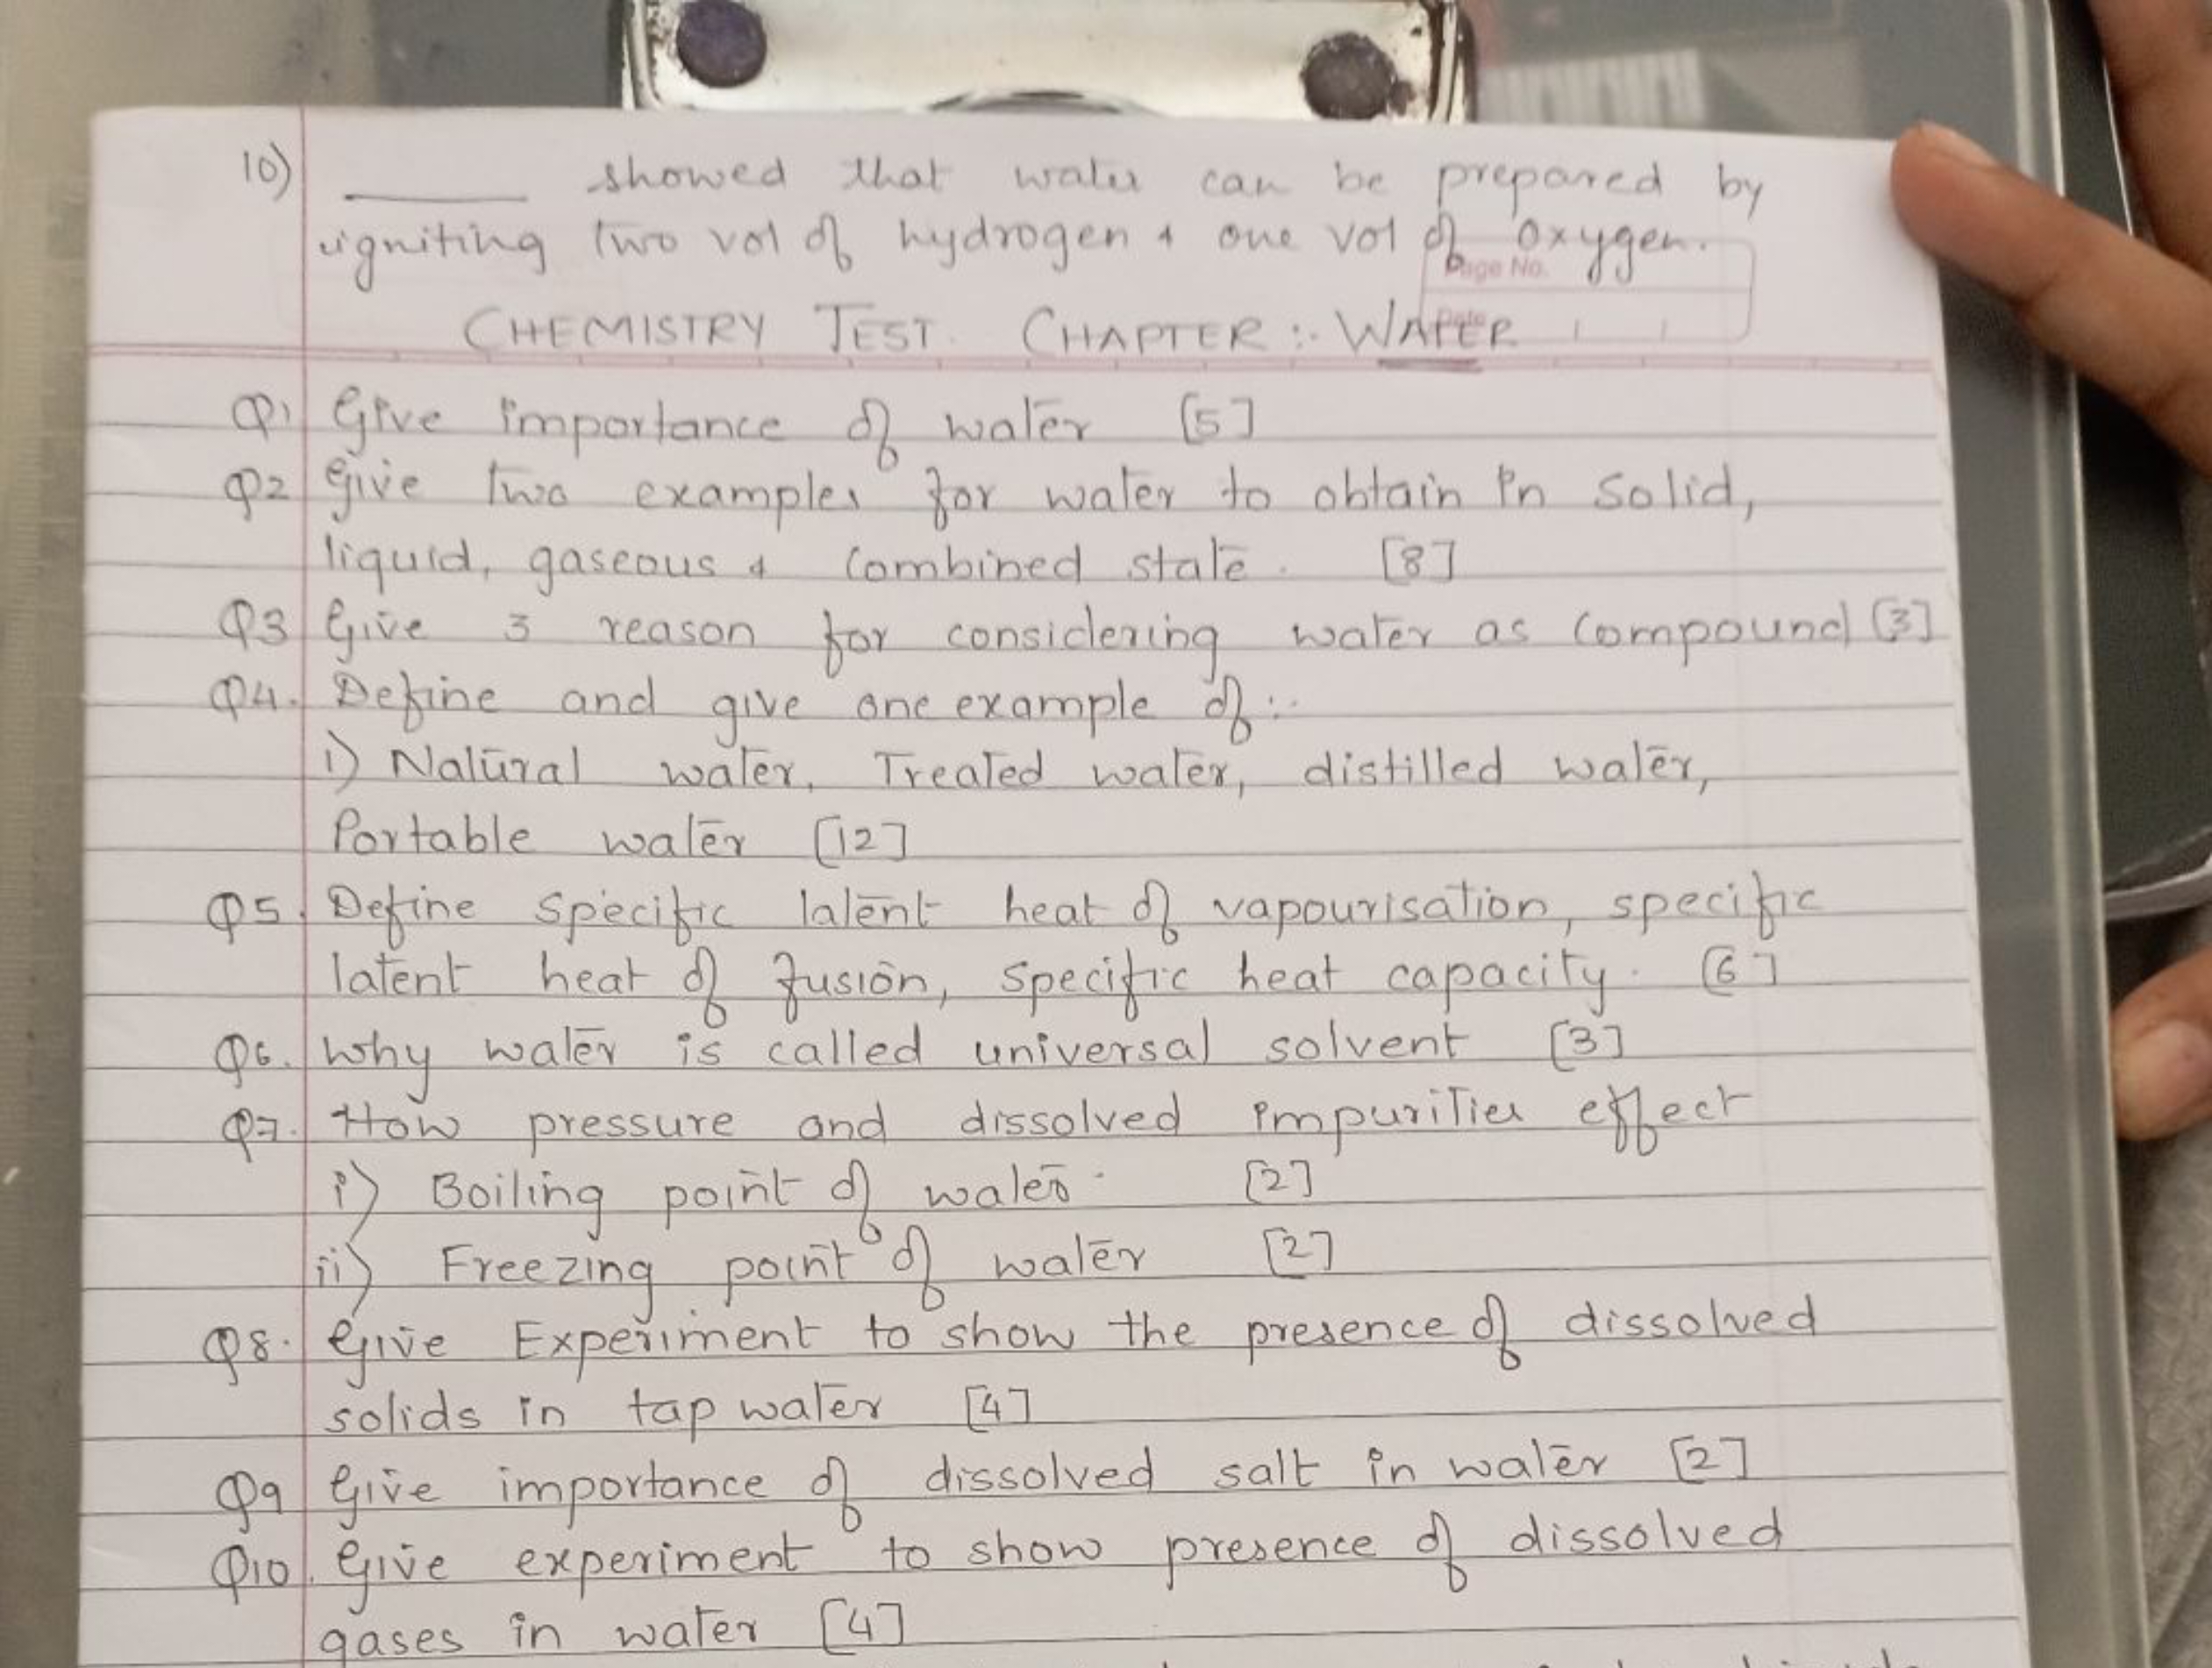 10) ______ showed that water can be prepared by
igniting two vol of hydrogen & one vol of oxygen.
Page No.
CHEMISTRY TEST. CHAPTER :- WATER
Date
Q1 Give importance of water [5]
Q2 Give two examples for water to obtain in solid,
liquid, gaseous & combined state. [8]
Q3 Give 3 reason for considering water as compound [3]
Q4. Define and give one example of :-
i) Natural water, Treated water, distilled water,
Portable water [12]
Q5. Define specific latent heat of vapourisation, specific
latent heat of fusion, specific heat capacity. [6]
Q6. Why water is called universal solvent [3]
Q7. How pressure and dissolved impurities effect
i) Boiling point of water. [2]
ii) Freezing point of water [2]
Q8. Give Experiment to show the presence of dissolved
solids in tap water [4]
Q9 Give importance of dissolved salt in water [2]
Q10. Give experiment to show presence of dissolved
gases in water [4]